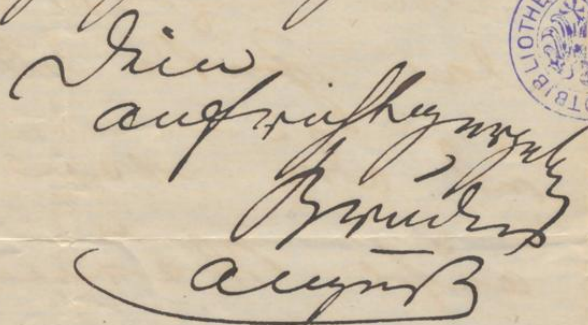 Dein
aufrichtigergebener
Bruder
August
BIBLIOTHE